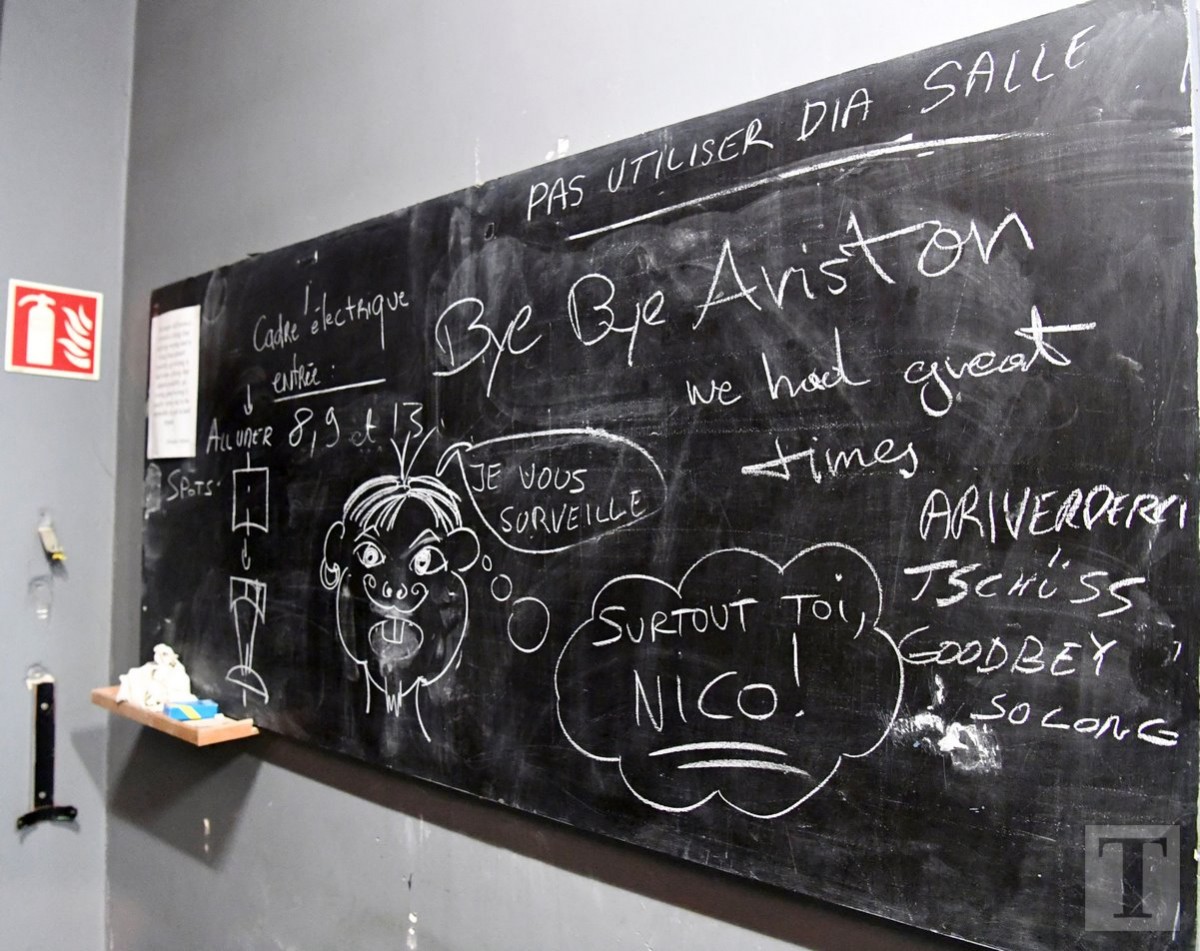 PAS UTILISER DIA SALLE
Cadre électrique
entrée :
ALLUMER 8, 9 et 13
SPOTS
Bye Bye Ariston
we had great
times
JE VOUS
SURVEILLE
SURTOUT TOI,
NICO!
ARIVERDERCI
TSCHÜSS
GOODBEY
SO LONG
T